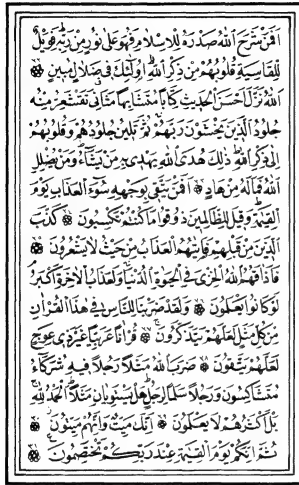 افمن شرح الله صدره للاسلام فهو على نور من ربه فويل
للقاسية قلوبهم من ذكر الله اولئك فى ضلال مبين
الله نزل احسن الحديث كتابا متشابها مثانى تقشعر منه
جلود الذين يخشون ربهم ثم تلين جلودهم وقلوبهم
الى ذكر الله ذلك هدى الله يهدى به من يشاء ومن يضلل
الله فما له من هاد افمن يتقى بوجهه سوء العذاب يوم
القيمة وقيل للظالمين ذوقوا ما كنتم تكسبون كذب
الذين من قبلهم فاتيهم العذاب من حيث لا يشعرون
فاذاقهم الله الخزى فى الحيوة الدنيا ولعذاب الاخرة اكبر
لو كانوا يعلمون ولقد ضربنا للناس فى هذا القران
من كل مثل لعلهم يتذكرون قرانا عربيا غير ذى عوج
لعلهم يتقون ضرب الله مثلا رجلا فيه شركاء
متشاكسون ورجلا سلما لرجل هل يستويان مثلا الحمد لله
بل اكثرهم لا يعلمون انك ميت وانهم ميتون
ثم انكم يوم القيمة عند ربكم تختصمون